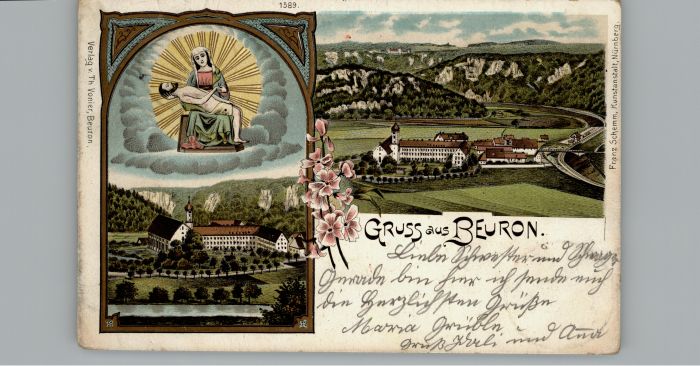 1389.
Verlag v. Th. Vonier, Beuron.
Franz Schemm, Kunstanstalt, Nürnberg.
GRUSS aus BEURON.
Liebe Schwester und
Gerade bin hier ich sende euch
die Herzlichsten Grüße
Maria Grüble
Gruß und